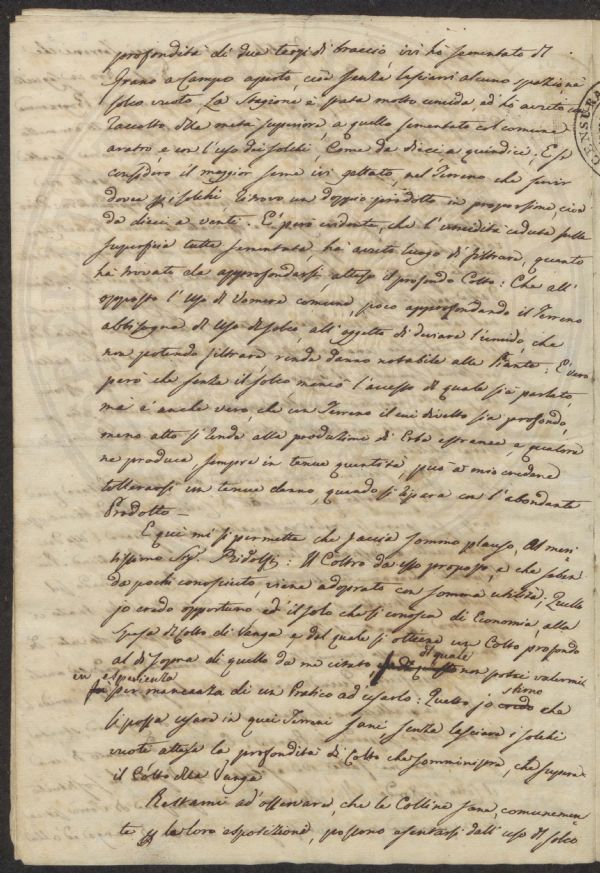 profondità di due terzi di braccio ivi hò sementato di
Grano a Campo aperto, cioè senza lasciarvi alcuno spazio nè
solco vuoto. La Stagione è stata molto umida, ed hò avuto un
raccolto, della metà superiore, a quello sementato col comune
aratro, e con l'uso dei solchi, Come da dieci, a quindici. E se
considero il maggior seme ivi gettato, nel Terreno che servir
dovea pei solchi, trovo un doppio prodotto in proporzione, cioè
da dieci a venti. E' però evidente, che l'umidità caduta sulla
superficie tutta sementata, hà avuto luogo di filtrare, quanto
hà trovato da approfondarsi, atteso il profondo Colto: Che all'
opposto l'Uso di Vomere comune, poco approfondando il Terreno
abbisogna di Uso di solco, all'oggetto di deviare l'umido, che
non potendo filtrare, renda danno notabile alle Piante. E' vero
però che senza il solco mancò l'accesso di quale si è parlato,
mà è anche vero, che un Terreno il cui divelto sia profondo,
meno atto si rende alla produzione di Erbe estranee, e qualora
ne produca, sempre in tenue quantità, può a mio credere
tollerarsi un tenue danno, quando si ripara con l'abondante
Prodotto —
E qui mi si permetta che faccia sommo plauso, al meri-
tissimo Sig. Ridolfi: Il Coltro da esso proposto, e che
da pochi conosciuto, viene adoprato con somma utilità; Quello
io credo opportuno ed il solo che si conosca di Economia, alla
spesa di Colto di Vanga, e del quale si ottiene un Colto profondo
al di sopra di quello da me citato di quale non potei valermi
in esperienza per mancanza di un Pratico ad usarlo: Quello io credo stimo che
si possa usare in quei Terreni sani senza lasciare i solchi
vuoti attesa la profondità di Colto che somministra, che supera
il Colto della Vanga
Restami ad osservare, che le Colline sane, comunemen-
te p la loro esposizione, possono esentarsi dall'uso di solco